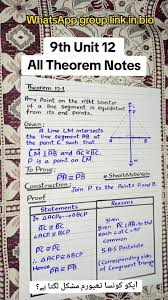 WhatsApp group link in bio
9th Unit 12
All Theorem Notes
Theorem 12.1
Any Point on the right bisector
of a line segment is equidistant
from its end points.
Given:
A Line LM intersects
the line segment AB at
the point C such that
LM ⊥ AB and AC ≅ BC.
P is a point on LM.
To Prove:
PA ≅ PB
Construction:
Join P to the Points A and B.
Proof
Statements Reasons
In ΔACP ↔ ΔBCP
AC ≅ BC Given
PC ≅ PC Common
ΔACP ≅ ΔBCP S.A.S Postulate
PA ≅ PB (Corresponding sides
of Congruent triangles)
آپکو کونسا تھیورم مشکل لگتا ہے؟